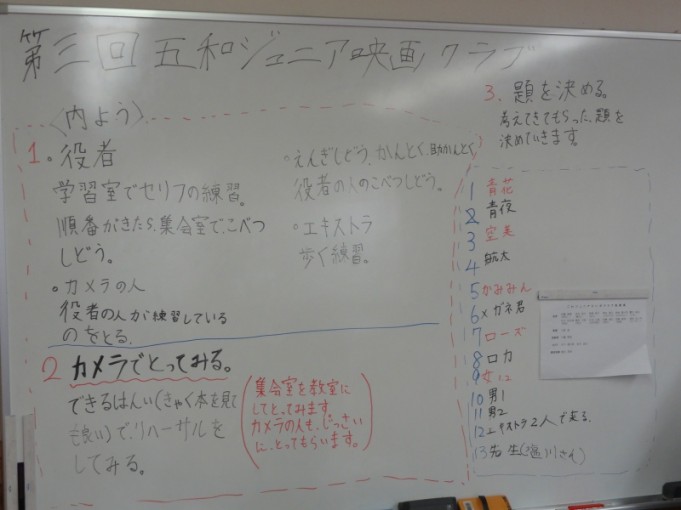 第三回五和ジュニア映画クラブ
〈内よう〉
1 ○役者
学習室でセリフの練習。
順番がきたら、集会室でこべつ
しどう。
○カメラの人
役者の人が練習している
のをとる。
○えんぎしどう、かんとく、助かんとく
役者の人のこべつしどう。
○エキストラ
歩く練習。
2 カメラでとってみる。
できるはんい(きゃく本を見て
も良い)で、リハーサルを
してみる。
(集会室を教室に
してとってみます。
カメラの人も、じっさい
に、とってもらいます。)
3. 題を決める。
考えてきてもらった、題を
決めていきます。
1 青花
2 青夜
3 空実
4 航大
5 かみみん
6 メガネ君
7 ローズ
8 ロカ
9 女
10 男1
11 男2
12 エキストラ2人で来る。
13 先生(川さん)